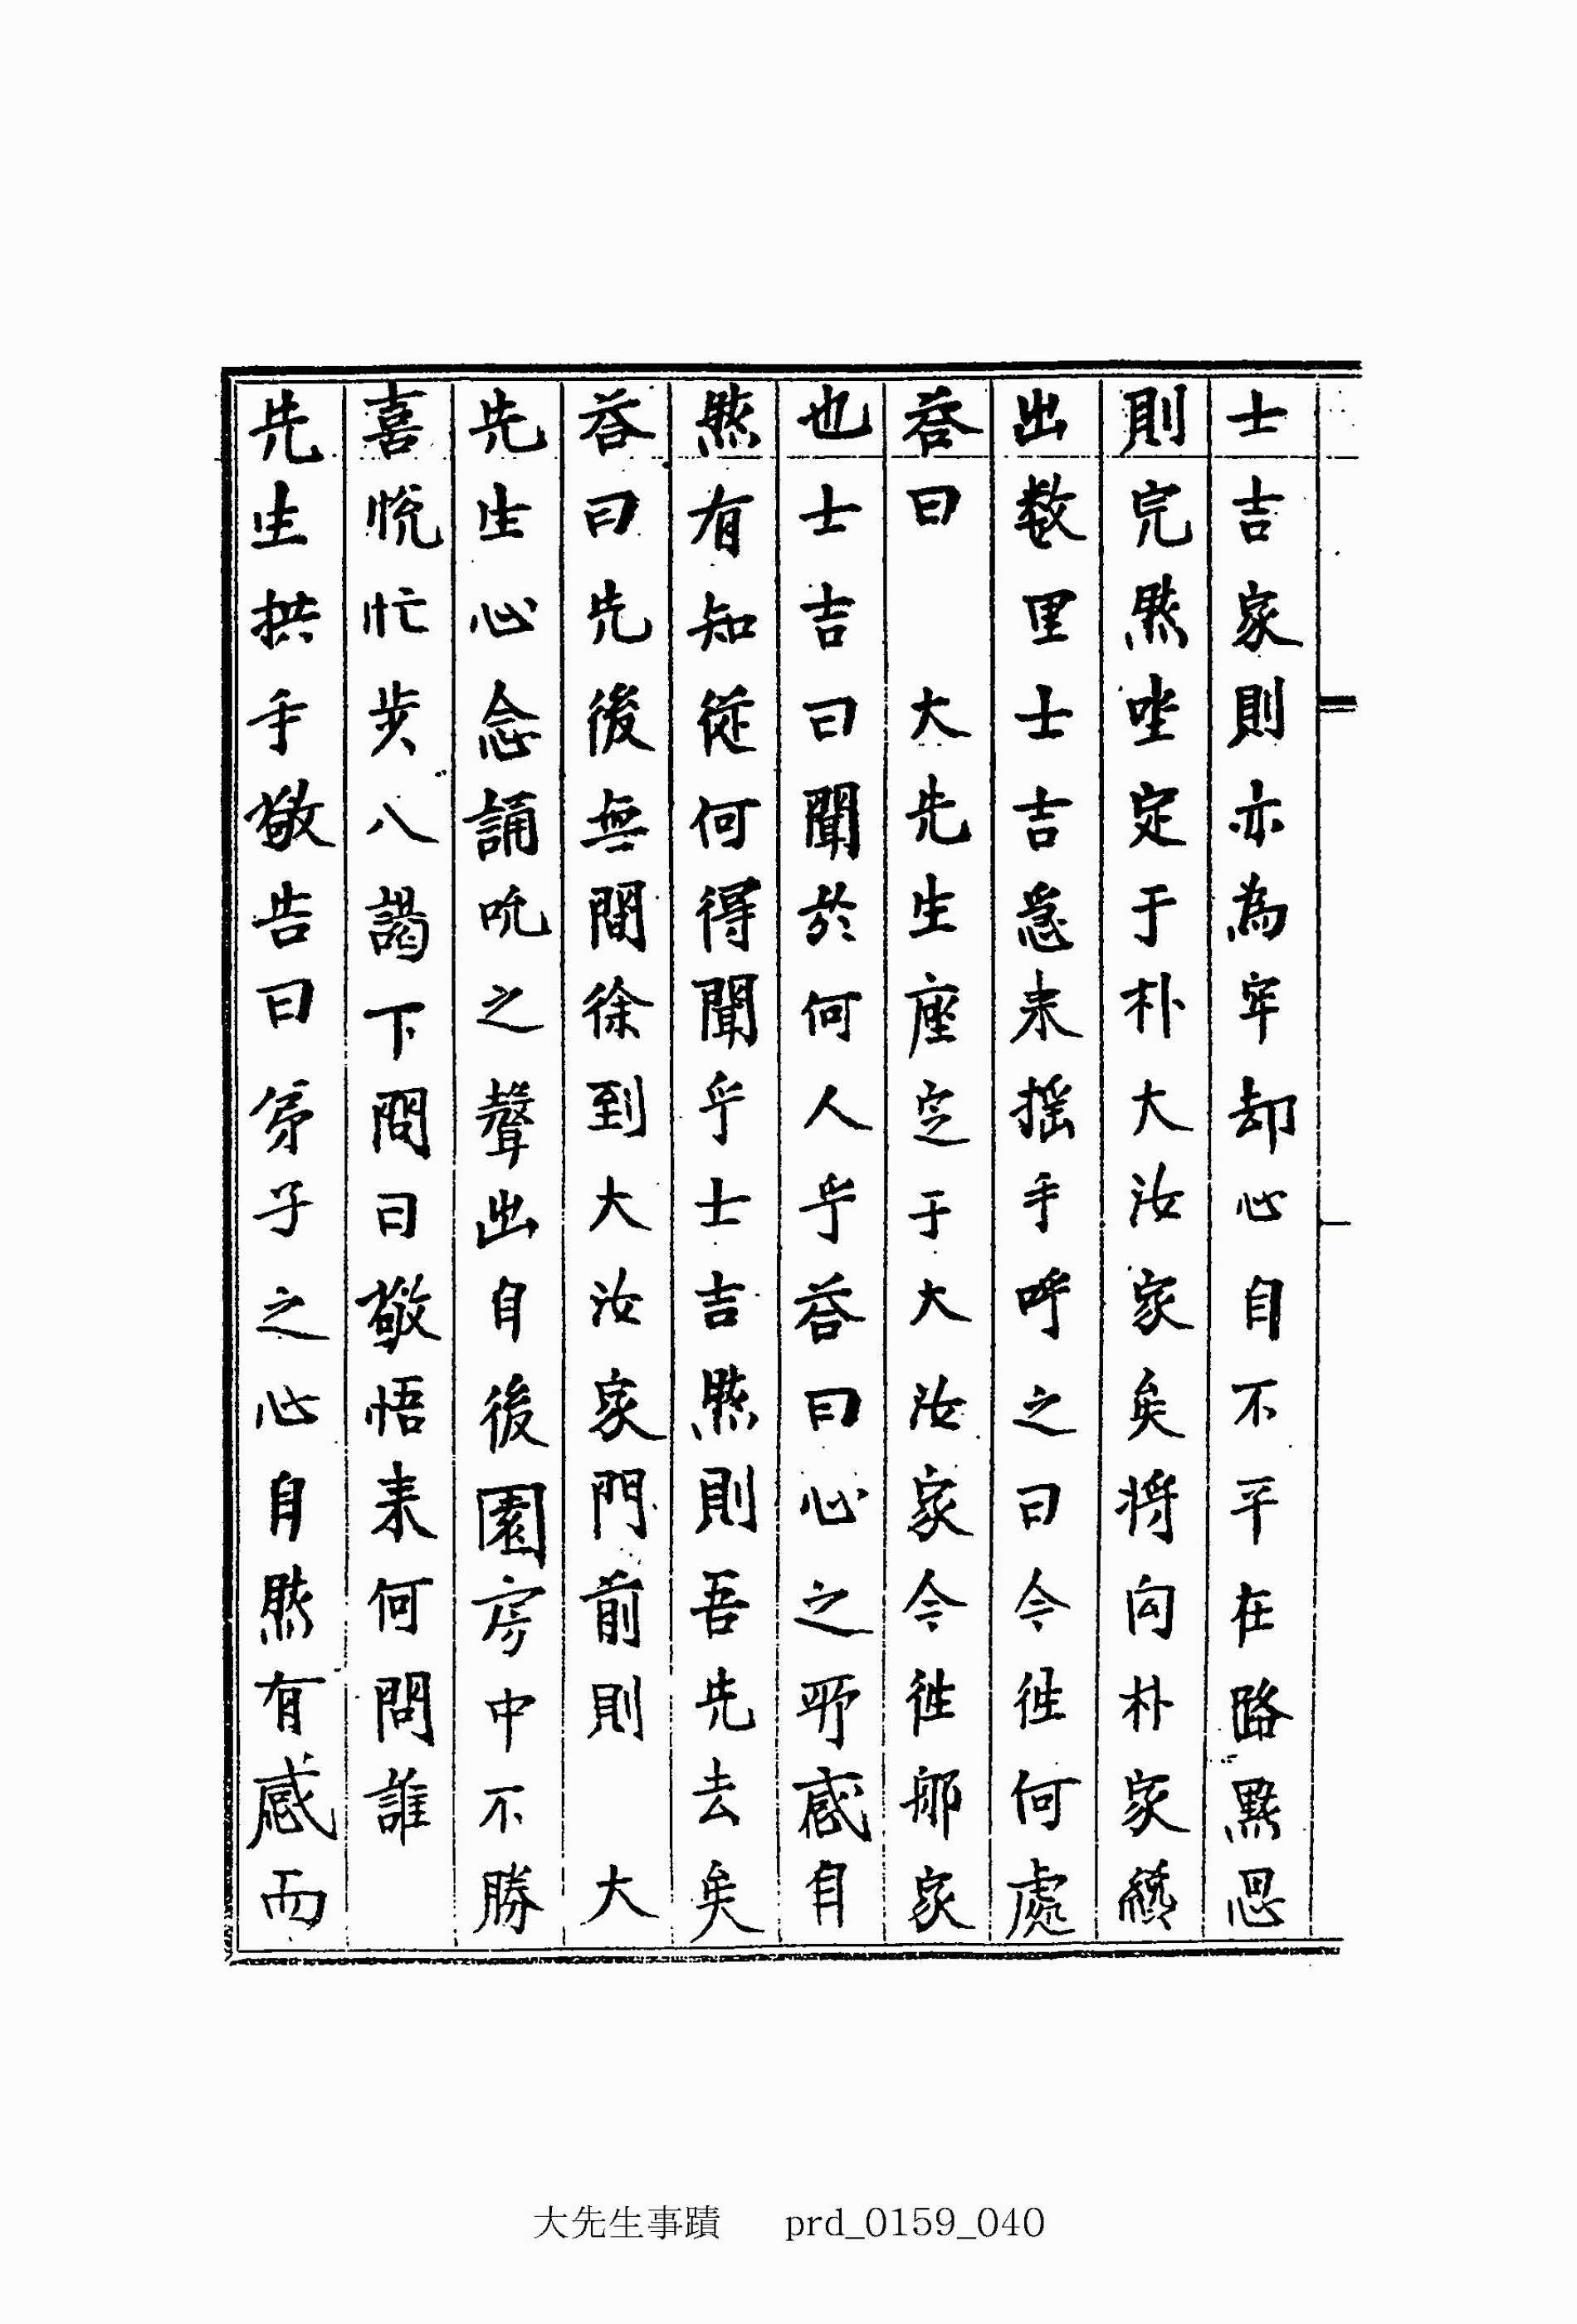 士吉家則亦為牢却心自不平在路默思
則完然坐定于朴大汝家矣將向朴家纔
出数里士吉急来揺手呼之曰今徃何處
答曰　大先生座定于大汝家今徃那家
也士吉曰聞於何人乎答曰心之所感自
然有知從何得聞乎士吉然則吾先去矣
答曰先後無間徐到大汝家門前則　大
先生心念誦呪之聲出自後園房中不勝
喜悦忙步入謁下問曰敬悟来何問誰
先生拱手敬告曰弟子之心自然有感而
大先生事蹟　prd_0159_040